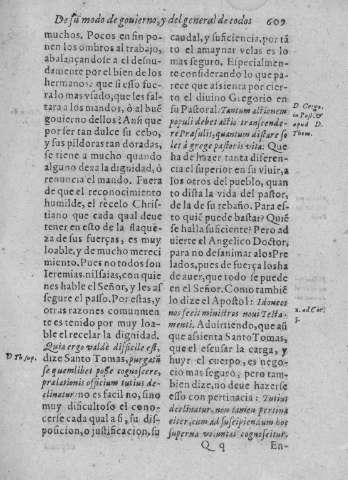 De su modo de gouierno, y del general de todos 609
muchos. Pocos en fin po-
nen los ombros al trabajo,
abalançandose a el desnu-
damente por el bien de los
hermanos: que si esso fue-
ra lo mas vsado, que les fal-
tara a los mandos, ò al buẽ
gouierno dellos? Ansi que
por ser tan dulce su cebo,
y sus pildoras tan doradas,
se tiene a mucho quando
alguno dexa la dignidad, ò
renuncia el mando. Fuera
de que el reconocimiento
humilde, el recelo Chris-
tiano que cada qual deue
tener en esto de la flaque-
za de sus fuerças, es muy
loable, y de mucho mereci
miento. Pues no todos son
Ieremias, ni Isaias, con quie
nes hable el Señor, y les as
segure el passo. Por estas, y
otras razones comunmen-
te es tenido por muy loa-
ble el recelar la dignidad.
Quia ergo valdè difficile est,
D Th. sup.
dize Santo Tomas, purgatũ
se quemlibet posse cognoscere,
prælationis officium tutius de-
clinatur: no es facil no, sino
muy dificultoso el cono-
cerse cada qual a si, su dis-
posicion, o justificacion, su
caudal, y suficiencia, por tã
to el amaynar velas es lo
mas seguro. Especialmen-
te considerando lo que pa-
rece que assienta por cier-
to el diuino Gregorio en
su Pastoral: Tantum actionem
D. Grego.
in Past. &
apud D.
Thom.
populi debet actio transcende-
re Præsulis, quantum distare so
let à grege pastoris vita: Que
ha de hazer tanta diferen-
cia el superior en su viuir, a
los otros del pueblo, quan
to dista la vida del pastor,
de la de su rebaño. Para es-
to quiẽ puede bastar? Quiẽ
se halla suficiente? Pero ad
uierte el Angelico Doctor,
para no desanimar alos Pre
lados, pues de fuerça los ha
de auer, que todo se puede
en el Señor. Como tambiẽ
lo dize el Apostol: Idoneos
2. ad Cor.
3.
nos fecit ministros noui Testa-
menti. Aduirtiendo, que aũ
que assienta Santo Tomas,
que el escusar la carga, y
huyr el cuerpo, es nego-
cio mas seguro; pero tam-
bien dize, no deue hazerse
esso con pertinacia: Tutius
declinatur, non tamen pertina
citer, cum ad suscipiendum hoc
superna voluntas cognoscitur.
Q q
En-